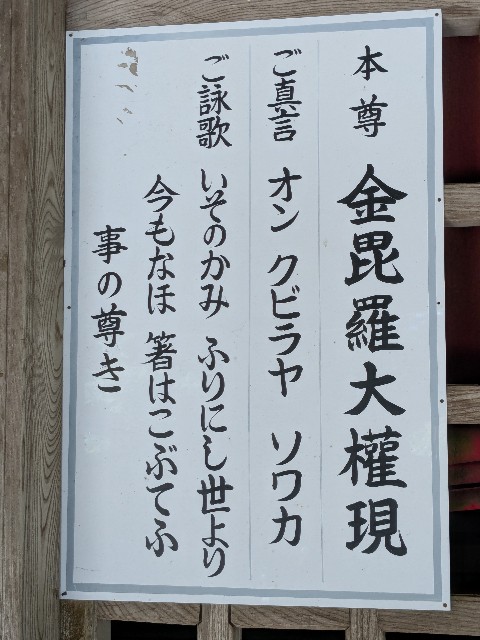 本尊 金毘羅大權現
ご真言 オン クビラヤ ソワカ
ご詠歌 いそのかみ ふりにし世より
今もなほ 箸はこぶてふ
事の尊き